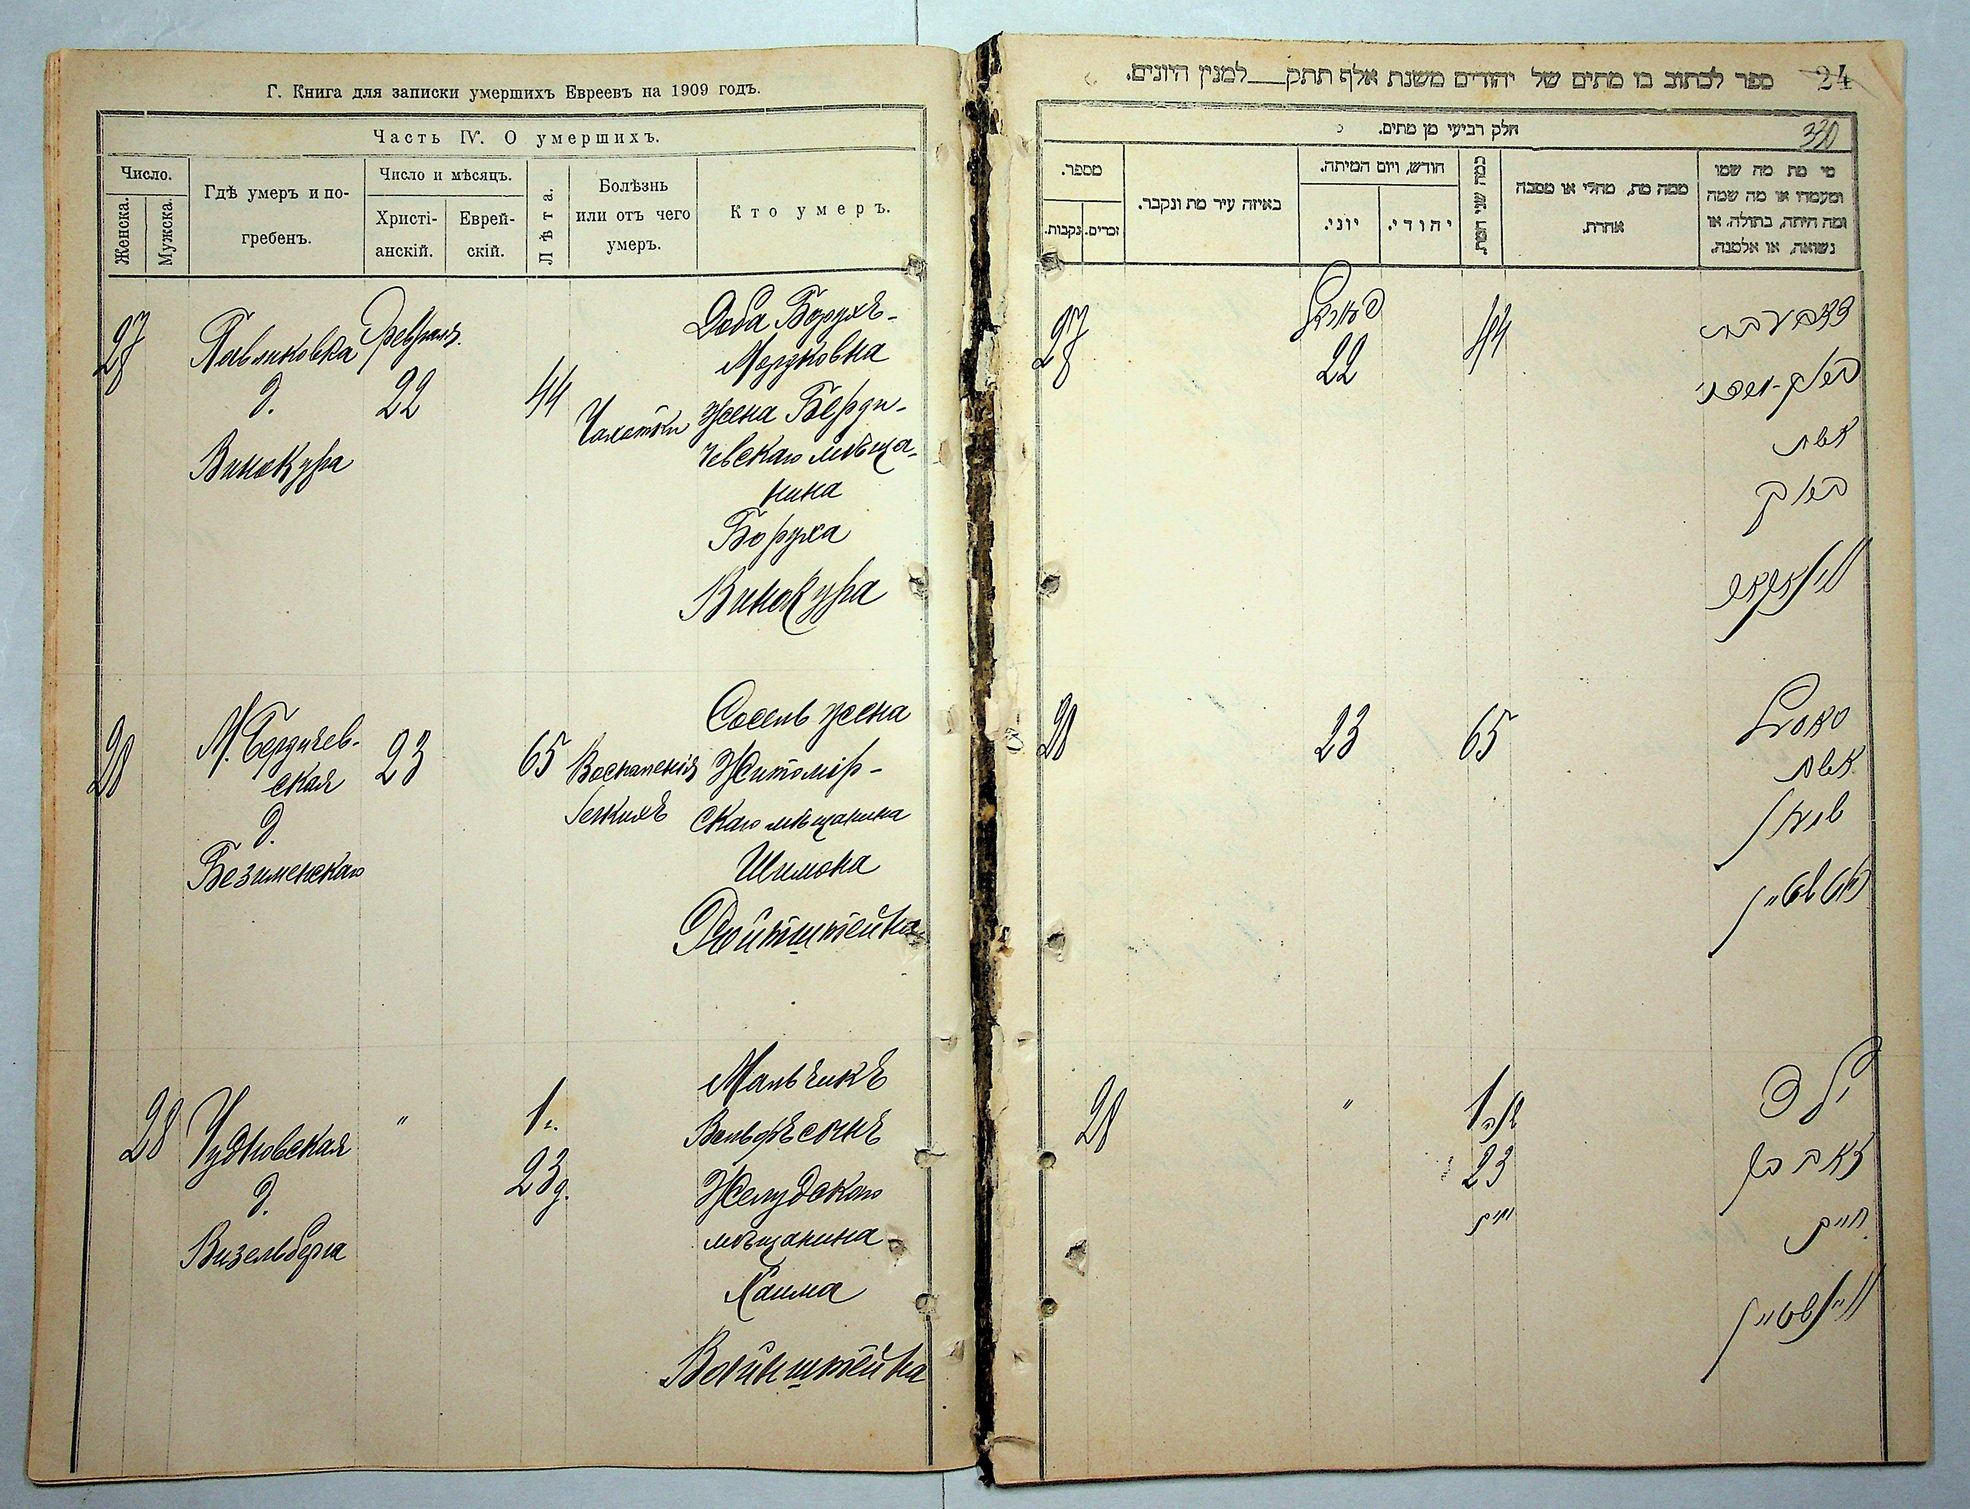 Г. Книга для записки умершихъ Евреевъ на 1909 годъ.
Часть IV. О умершихъ.
Число.
Женска.
Мужска.
Гдѣ умеръ и по-
гребенъ.
Число и мѣсяцъ.
Христі-
анскій.
Еврей-
скій.
Лѣта.
Болѣзнь
или отъ чего
умеръ.
Кто умеръ.
27
Павликовка
д.
Винокура
Февраль
22
44
Чахотки
Доба Борухъ-
Мордковна
жена Берди-
чевскаго мѣща-
нина
Боруха
Винокура
28
М. Бердичев-
ская
д.
Безименскаго
23
65
Воспаленія
легкихъ
Сосель жена
Житомір-
скаго мѣщанина
Шимона
Ройтштейна
28
Чудновская
д.
Визельберга
"
1 г.
23 д.
Мальчикъ
Вольфъ сынъ
Желудскаго
мѣщанина
Хаима
Вайнштейна
ספר לכתוב בו מתים של יהודים משנת אלף תתק___למנין היונים.
24
חלק רביעי מן מתים.
330
מספר.
זכרים.
נקבות.
באיזה עיר מת ונקבר.
חודש, ויום המיתה.
יוני.
יהודי.
כמה שני המת.
ממה מת, מחלי או מסבה
אחרת.
מי מת מה שמו
ומעמדו או מה שמה
ומה היתה, בתולה, או
נשואה, או אלמנה.
27
22
44
אשת
ברוך
28
23
65
אשת
שמעון
28
"
1
שנה
23
ימים
ילד
חיים